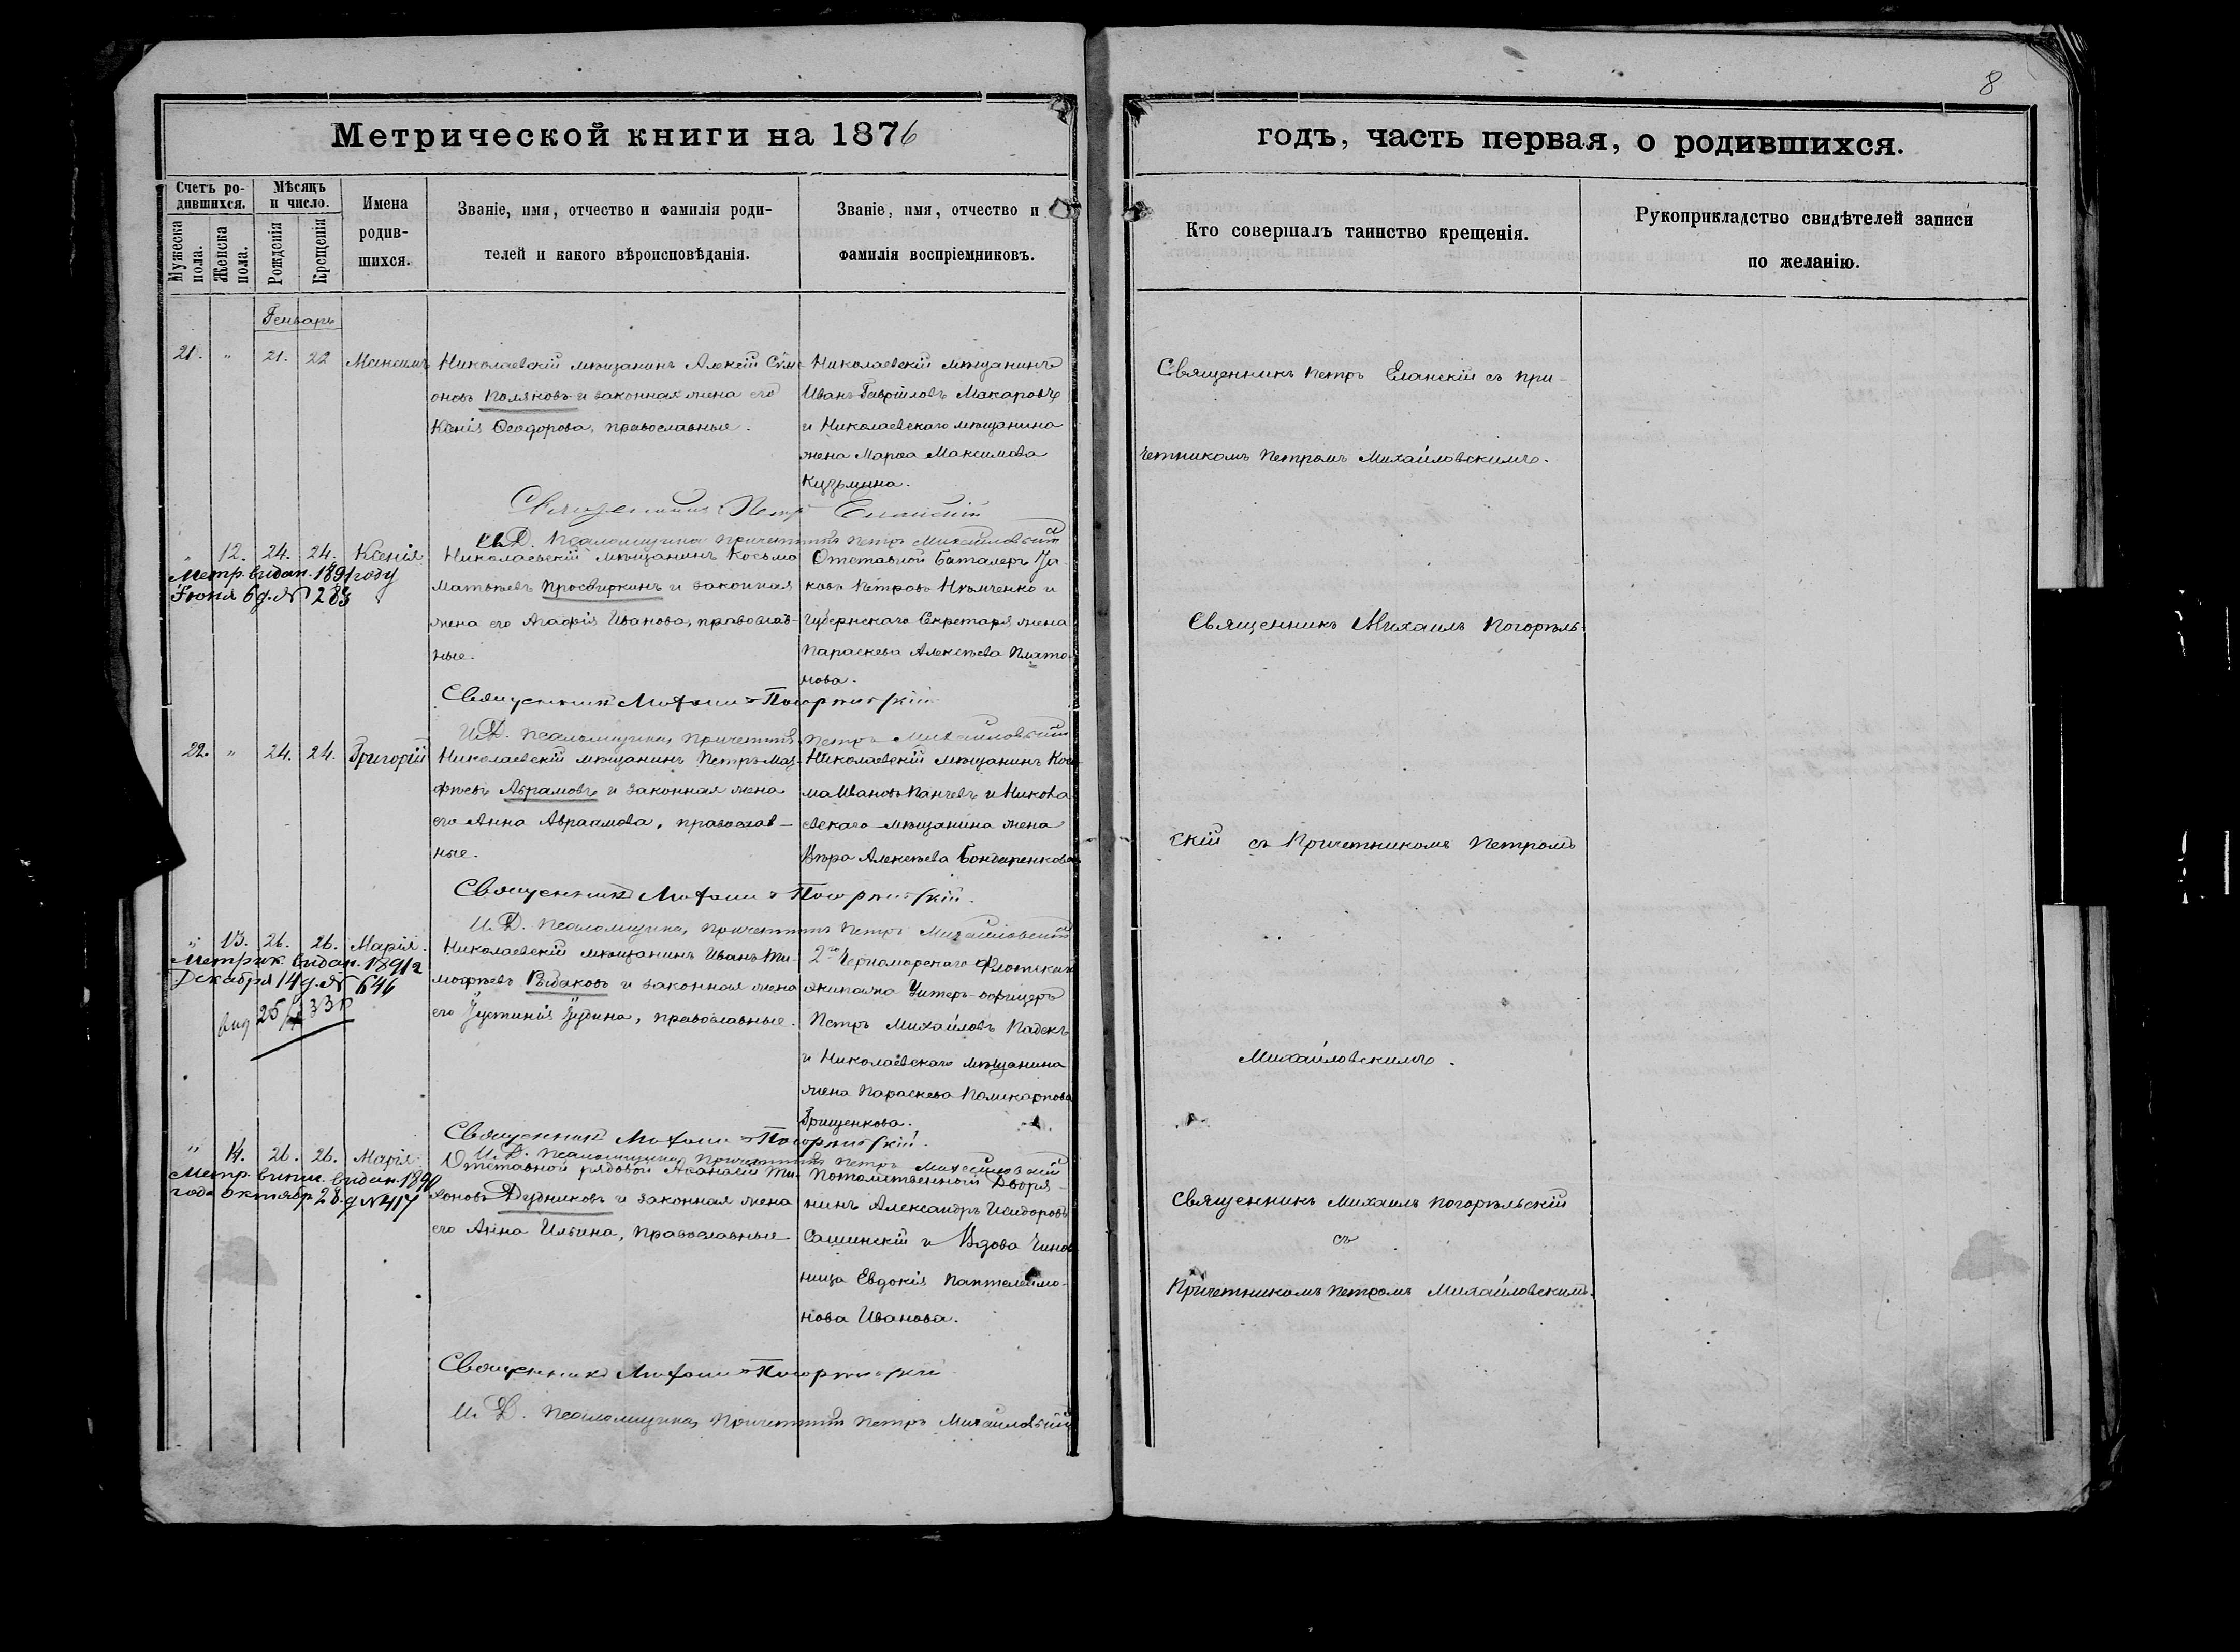 8
Метрической книги на 1876
годъ, часть первая, о родившихся.
Счетъ ро-
дившихся.
Мужеска
пола.
Женска
пола.
Мѣсяцъ
и число.
Рожденія
Крещенія
Имена
родив-
шихся.
Званіе, имя, отчество и фамилія роди-
телей и какого вѣроисповѣданія.
Званіе, имя, отчество и
фамилія воспріемниковъ.
Кто совершалъ таинство крещенія.
Рукоприкладство свидѣтелей записи
по желанію.
Генварь
21. " 21. 22 Максимъ
Николаевскій мѣщанинъ Алексій Сѵме
оновъ Поляковъ и законная жена его
Ксенія Ѳеодорова, православные.
Николаевскій мѣщанинъ
Иванъ Гавріиловъ Макаровъ
и Николаевскаго мѣщанина
жена Марѳа Максимова
Кузьмина.
Священникъ Петръ Еланскій съ при-
четникомъ Петромъ Михайловскимъ.
Священникъ Петръ Еланскій
И.Д. Псаломщика Причетникъ Петръ Михайловскій
" 12. 24. 24. Ксенія
Метр. видан. 1891 году
Іюня 6 д. № 283
Николаевскій мѣщанинъ Косьма
Матѳѣевъ Просвиркинъ и законная
жена его Агафія Иванова, православ-
ные.
Отставной Баталеръ Іа-
ковъ Петровъ Нѣмченко и
Губернскаго Секретаря жена
Параскева Алексѣева Плато-
нова.
Священникъ Михаилъ Погорѣль-
Священникъ Михаилъ Погорѣльскій
И.Д. Псаломщика Причетникъ Петръ Михайловскій
22. " 24. 24. Григорій
Николаевскій мѣщанинъ Петръ Мат-
ѳѣевъ Абрамовъ и законная жена
его Анна Авраамова, православ-
ные.
Николаевскій мѣщанинъ Кось
ма Ивановъ Панчевъ и Никола
евскаго мѣщанина жена
Вѣра Алексѣева Бондаренкова
скій съ Причетникомъ Петромъ
Священникъ Михаилъ Погорѣльскій.
И.Д. Псаломщика, Причетникъ Петръ Михайловскій
" 13. 26. 26. Марія.
Метрик. видан. 1891 г
Декабря 14 д. № 646
Николаевскій мѣщанинъ Иванъ Ти-
моѳѣевъ Рыбаковъ и законная жена
его Іустинія Іудина, православные.
2го Черноморскаго Флотскаго
экипажа Унтеръ-офицеръ
Петръ Михайловъ Падекъ
и Николаевскаго мѣщанина
жена Параскева Поликарпова
Грищенкова.
Михайловскимъ.
Священникъ Михаилъ Погорѣльскій.
И.Д. Псаломщика Причетникъ Петръ Михайловскій
" 14. 26. 26. Марія
Метр. выпис. видан. 1890
года октябр 28. д № 417
Отставной рядовой Аѳанасій Ти-
хоновъ Дудниковъ и законная жена
его Анна Ильина, православные
Потомственный Дворя-
нинъ Александръ Исидоровъ
Сашинскій и Вдова Чинов
ница Евдокія Пантелеймо-
нова Иванова.
Священникъ Михаилъ Погорѣльскій
съ
Причетникомъ Петромъ Михайловскимъ.
Священникъ Михаилъ Погорѣльскій
И.Д. Псаломщика, Причетникъ Петръ Михайловскій